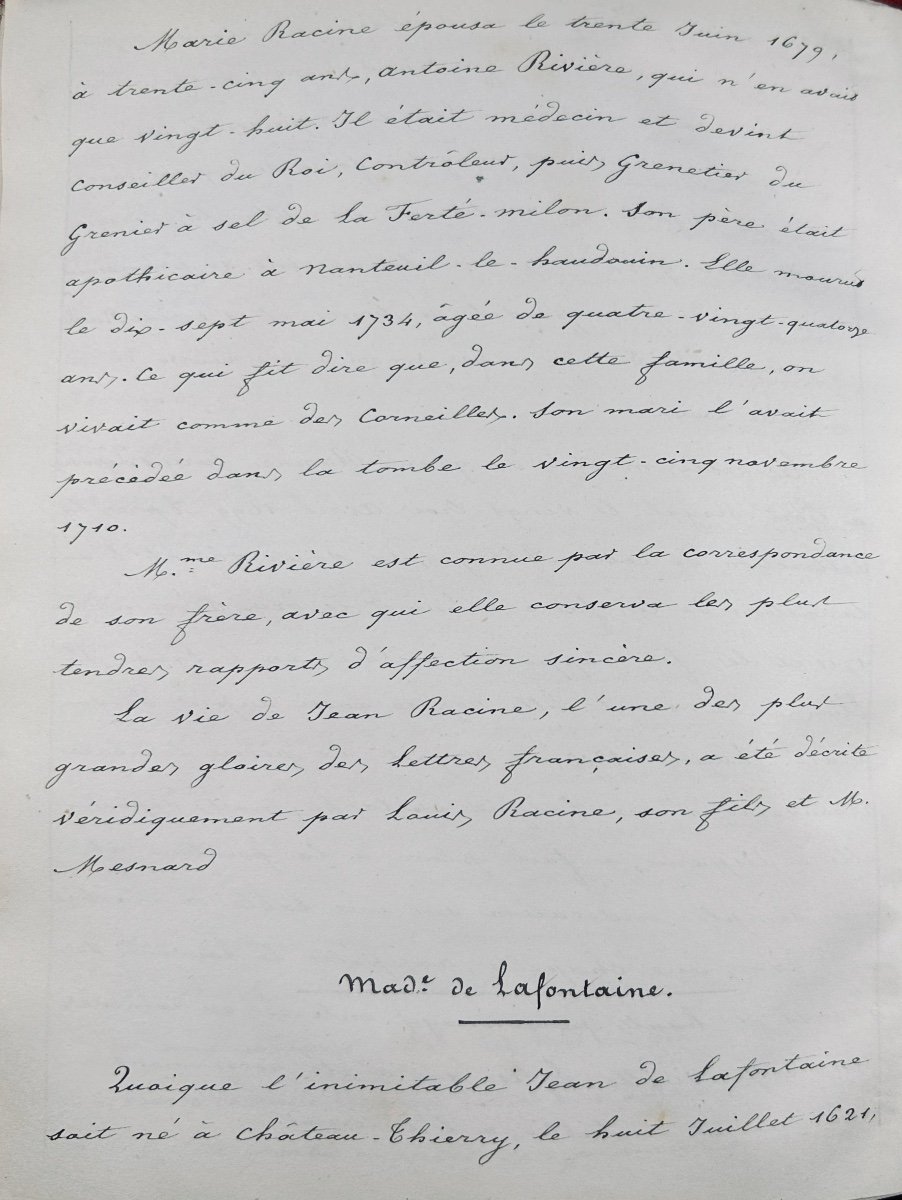 Marie Racine épousa le trente Juin 1679,
à trente-cinq ans, Antoine Rivière, qui n'en avait
que vingt-huit. Il était médecin et devint
Conseiller du Roi, Contrôleur, puis Grenetier du
Grenier à sel de La Ferté-milon. Son père était
apothicaire à Nanteuil-le-haudouin. Elle mourut
le dix-sept mai 1734, âgée de quatre-vingt-quatorze
ans. Ce qui fit dire que, dans cette famille, on
vivait comme des Corneilles. Son mari l'avait
précédée dans la tombe le vingt-cinq novembre
1710.
M.me Rivière est connue par la correspondance
de son frère, avec qui elle conserva les plus
tendres rapports d'affection sincère.
La vie de Jean Racine, l'une des plus
grandes gloires des Lettres françaises, a été décrite
véridiquement par Louis Racine, son fils et M.
Mesnard
Mad.e de Lafontaine.
Quoique l'inimitable Jean de Lafontaine
soit né à Château-Thierry, le huit Juillet 1621,